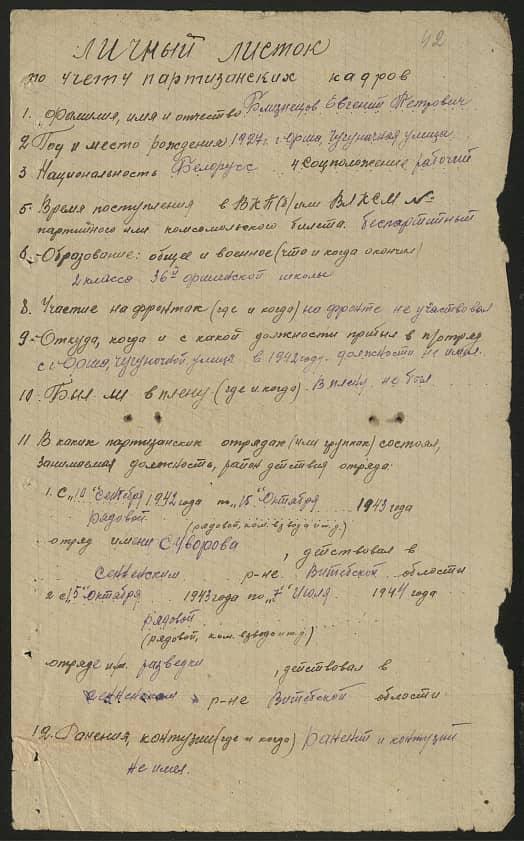 42
ЛИЧНЫЙ ЛИСТОК
по учету партизанских кадров
1. Фамилия, имя и отчество Близнецов Евгений Петрович
2. Год и место рождения 1927г. г. Орша, Чугуначная улица
3. Национальность Белорусс 4. Соцположение рабочий
5. Время поступления в ВКП(б) или ВЛКСМ №
партийного или комсомольского билета. беспартийный
6. Образование: общее и военное (что и когда окончил)
2 класса 36й оршанской школы
8. Участие на фронтах (где и когда) на фронте не участвовал
9. Откуда, когда и с какой должности прибыл в п/отряд
с г. Орша, Чугуночной улица в 1942 году. должности не имел.
10. Был ли в плену (где и когда). В плену не был
11 В каких партизанских отрядах (или группах) состоял,
занимаемая должность, район действия отряда:
1. С "10" Сентября 1942 года по "15" Октября 1943 года
рядовой
(рядовой, ком. взвода и т.д.)
отряд имени Суворова , действовал в
Сенненским р-не Витебской области
2 с "5" Октября 1943 года по "7" Июля 1944 года
рядовой
(рядовой, ком. взвода и т.д.)
отряде разведки , действовал в
Сенненском р-не Витебской области
12. Ранения, контузии (где и когда) ранений и контузий
не имел.